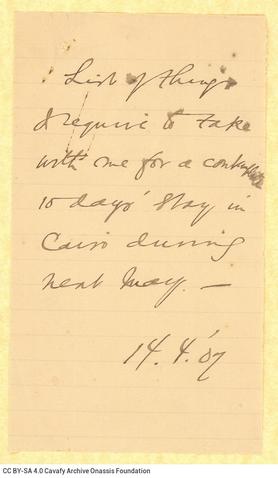 List of things
I require to take
with me for a contemplated
10 days' stay in
Cairo during
next May. —
14.4.'07
CC BY-SA 4.0 Cavafy Archive Onassis Foundation